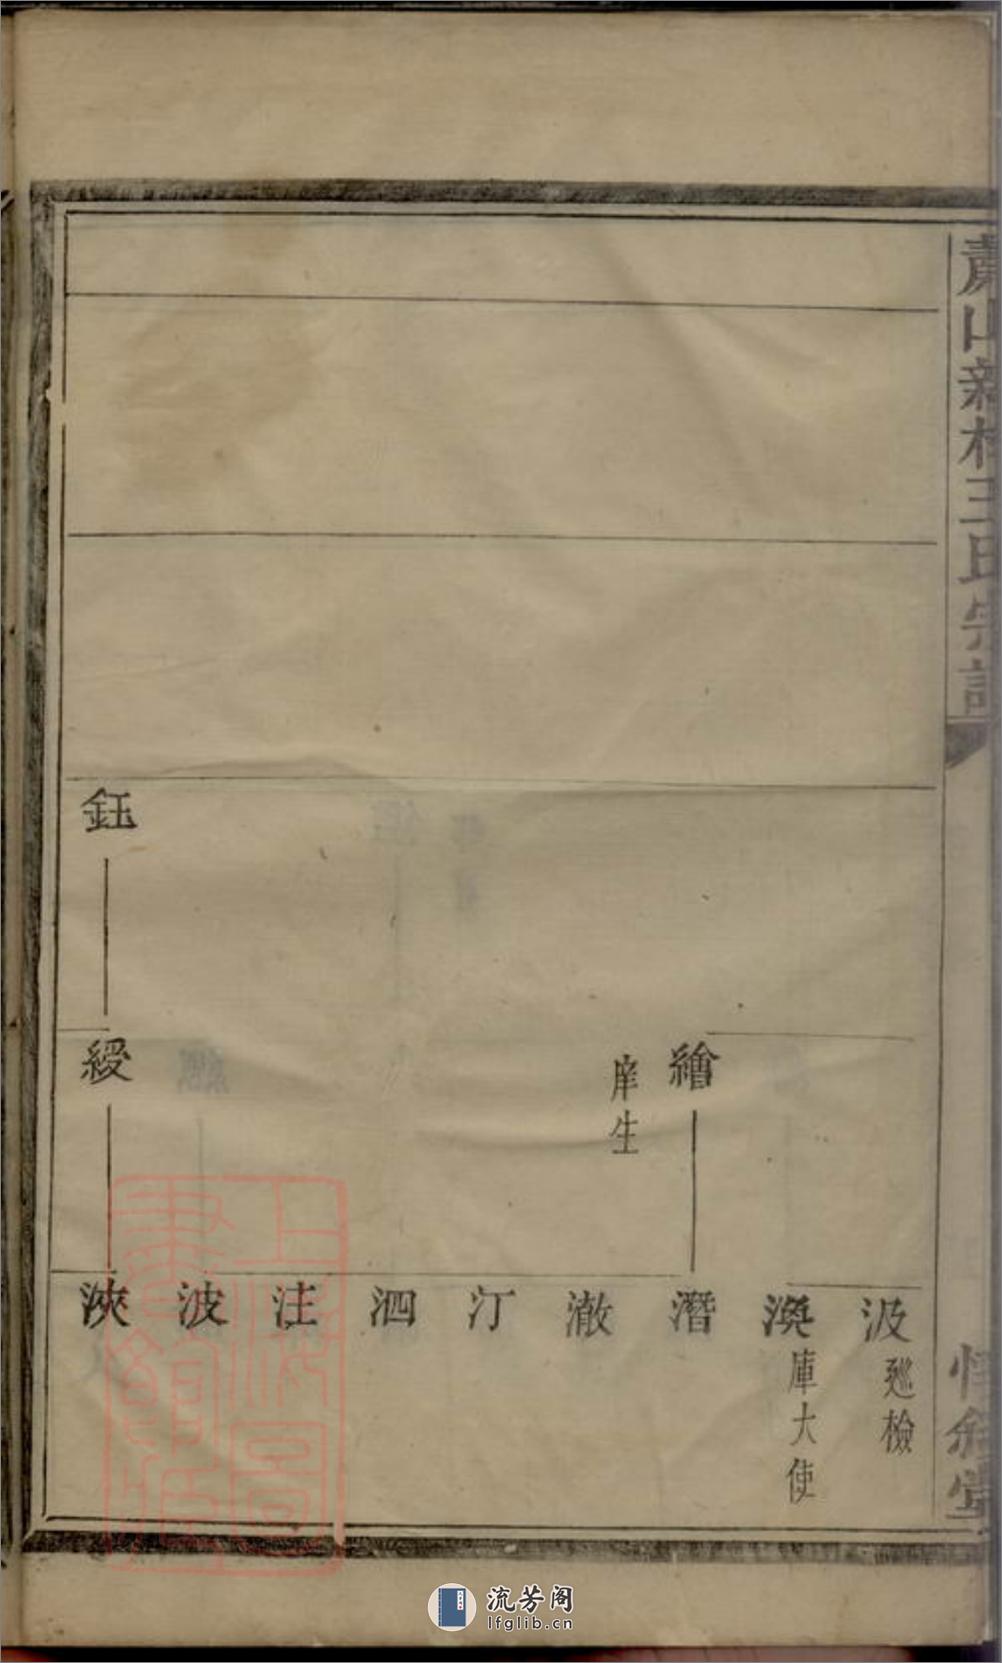 蕭山新村王氏宗譜
惇敘堂
汲 巡檢
渙 庫大使
繪 庠生
潛
澈
汀
泗
注
波
鈺
綬
浹
上海圖書館藏
流芳阁
lfglib.cn